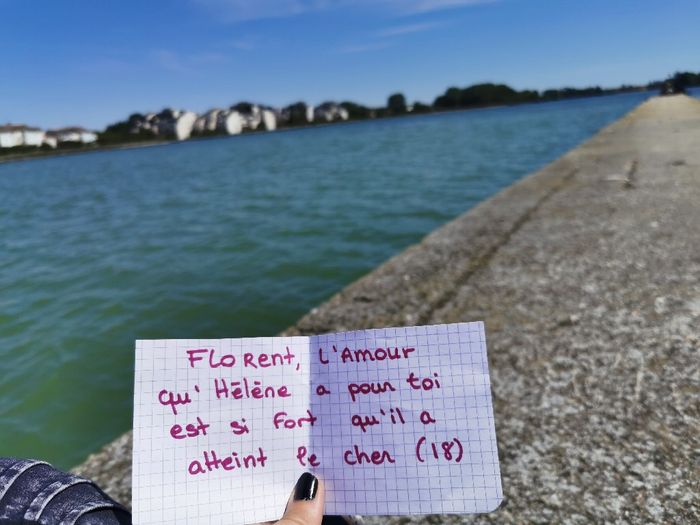 Florent, l'Amour
qu' Hélène a pour toi
est si fort qu'il a
atteint le cher (18)